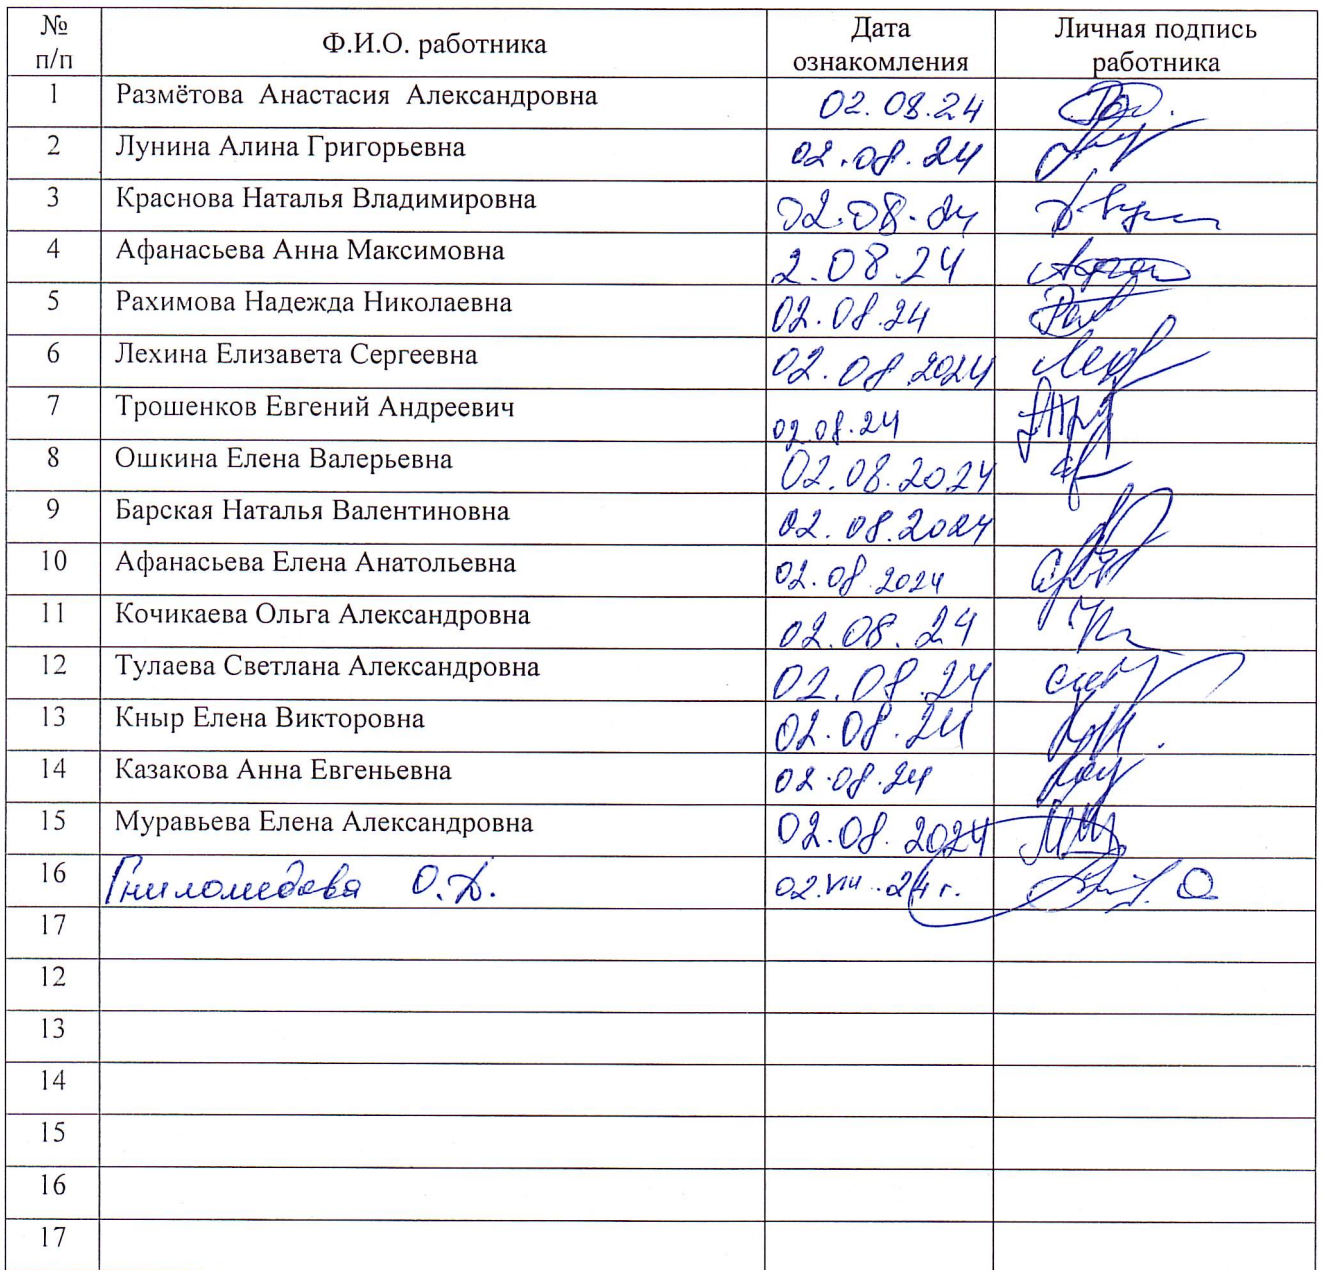 № п/п Ф.И.О. работника Дата ознакомления Личная подпись работника
1 Размётова Анастасия Александровна 02.08.24
2 Лунина Алина Григорьевна 02.08.24
3 Краснова Наталья Владимировна 02.08.24
4 Афанасьева Анна Максимовна 2.08.24
5 Рахимова Надежда Николаевна 02.08.24
6 Лехина Елизавета Сергеевна 02.08.2024
7 Трошенков Евгений Андреевич 02.08.24
8 Ошкина Елена Валерьевна 02.08.2024
9 Барская Наталья Валентиновна 02.08.2024
10 Афанасьева Елена Анатольевна 02.08.2024
11 Кочикаева Ольга Александровна 02.08.24
12 Тулаева Светлана Александровна 02.08.24
13 Кныр Елена Викторовна 02.08.24
14 Казакова Анна Евгеньевна 02.08.24
15 Муравьева Елена Александровна 02.08.2024
16 Гниломедова О.Д. 02.VIII.24 г.
17
12
13
14
15
16
17